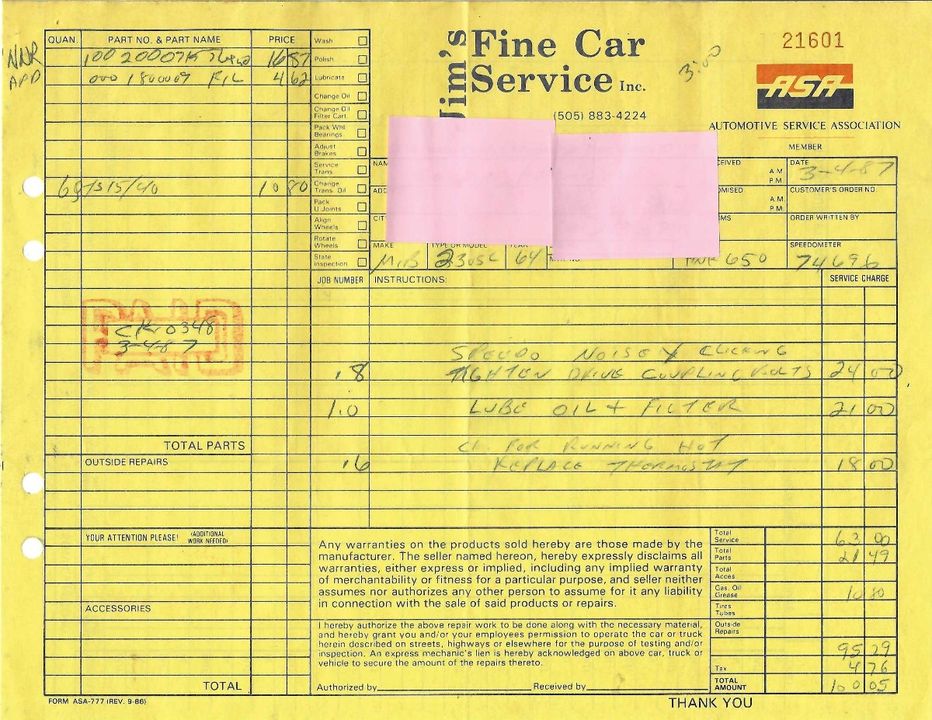 Jim's
Fine Car
Service Inc.
(505) 883-4224
3:00
21601
ASA
AUTOMOTIVE SERVICE ASSOCIATION
MEMBER
QUAN. PART NO. & PART NAME PRICE
NNR 100 2000715 16 87
APD 000 1800009 FIL 4 62
6 qts 15/40 10 80
Wash
Polish
Lubricate
Change Oil
Change Oil Filter Cart.
Pack Whl Bearings
Adjust Brakes
Service Trans
Change Trans. Oil
Pack U Joints
Align Wheels
Rotate Wheels
State Inspection
DATE
3-4-87
A.M.
P.M.
CUSTOMER'S ORDER NO.
A.M.
P.M.
ORDER WRITTEN BY
MAKE TYPE OR MODEL YEAR SPEEDOMETER
MRB 230SL 64 650 74698
JOB NUMBER INSTRUCTIONS: SERVICE CHARGE
PAID
CK 0348
3-4-87
SPEEDO NOISEY CLICKING
.8 TIGHTEN DRIVE COUPLING BOLTS 24 00
1.0 LUBE OIL + FILTER 21 00
CK FOR RUNNING HOT
.6 REPLACE THERMOSTAT 18 00
TOTAL PARTS
OUTSIDE REPAIRS
YOUR ATTENTION PLEASE! (ADDITIONAL WORK NEEDED)
ACCESSORIES
TOTAL
Any warranties on the products sold hereby are those made by the
manufacturer. The seller named hereon, hereby expressly disclaims all
warranties, either express or implied, including any implied warranty
of merchantability or fitness for a particular purpose, and seller neither
assumes nor authorizes any other person to assume for it any liability
in connection with the sale of said products or repairs.
I hereby authorize the above repair work to be done along with the necessary material,
and hereby grant you and/or your employees permission to operate the car or truck
herein described on streets, highways or elsewhere for the purpose of testing and/or
inspection. An express mechanic's lien is hereby acknowledged on above car, truck or
vehicle to secure the amount of the repairs thereto.
Authorized by Received by
Total Service 63 00
Total Parts 21 49
Total Acces.
Gas, Oil Grease 10 80
Tires Tubes
Outside Repairs
95 29
Tax 4 76
TOTAL AMOUNT 100 05
FORM ASA-777 (REV. 9-86)
THANK YOU